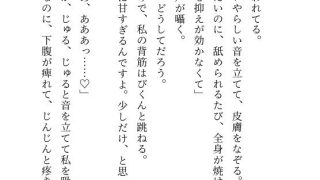 れてる。
やらしい音を立てて、皮膚をなぞる。
たいのに、舐められるたび、全身が焼け
を抑えが効かなくて」
が囁く。
どうしてだろう。
で、私の背筋はびくんと跳ねる。
甘すぎるんですよ。少しだけ、と思
、あああっ……♡」
、じゅる、じゅると音を立てて私を
なのに、下腹が痺れて、じんじんと疼